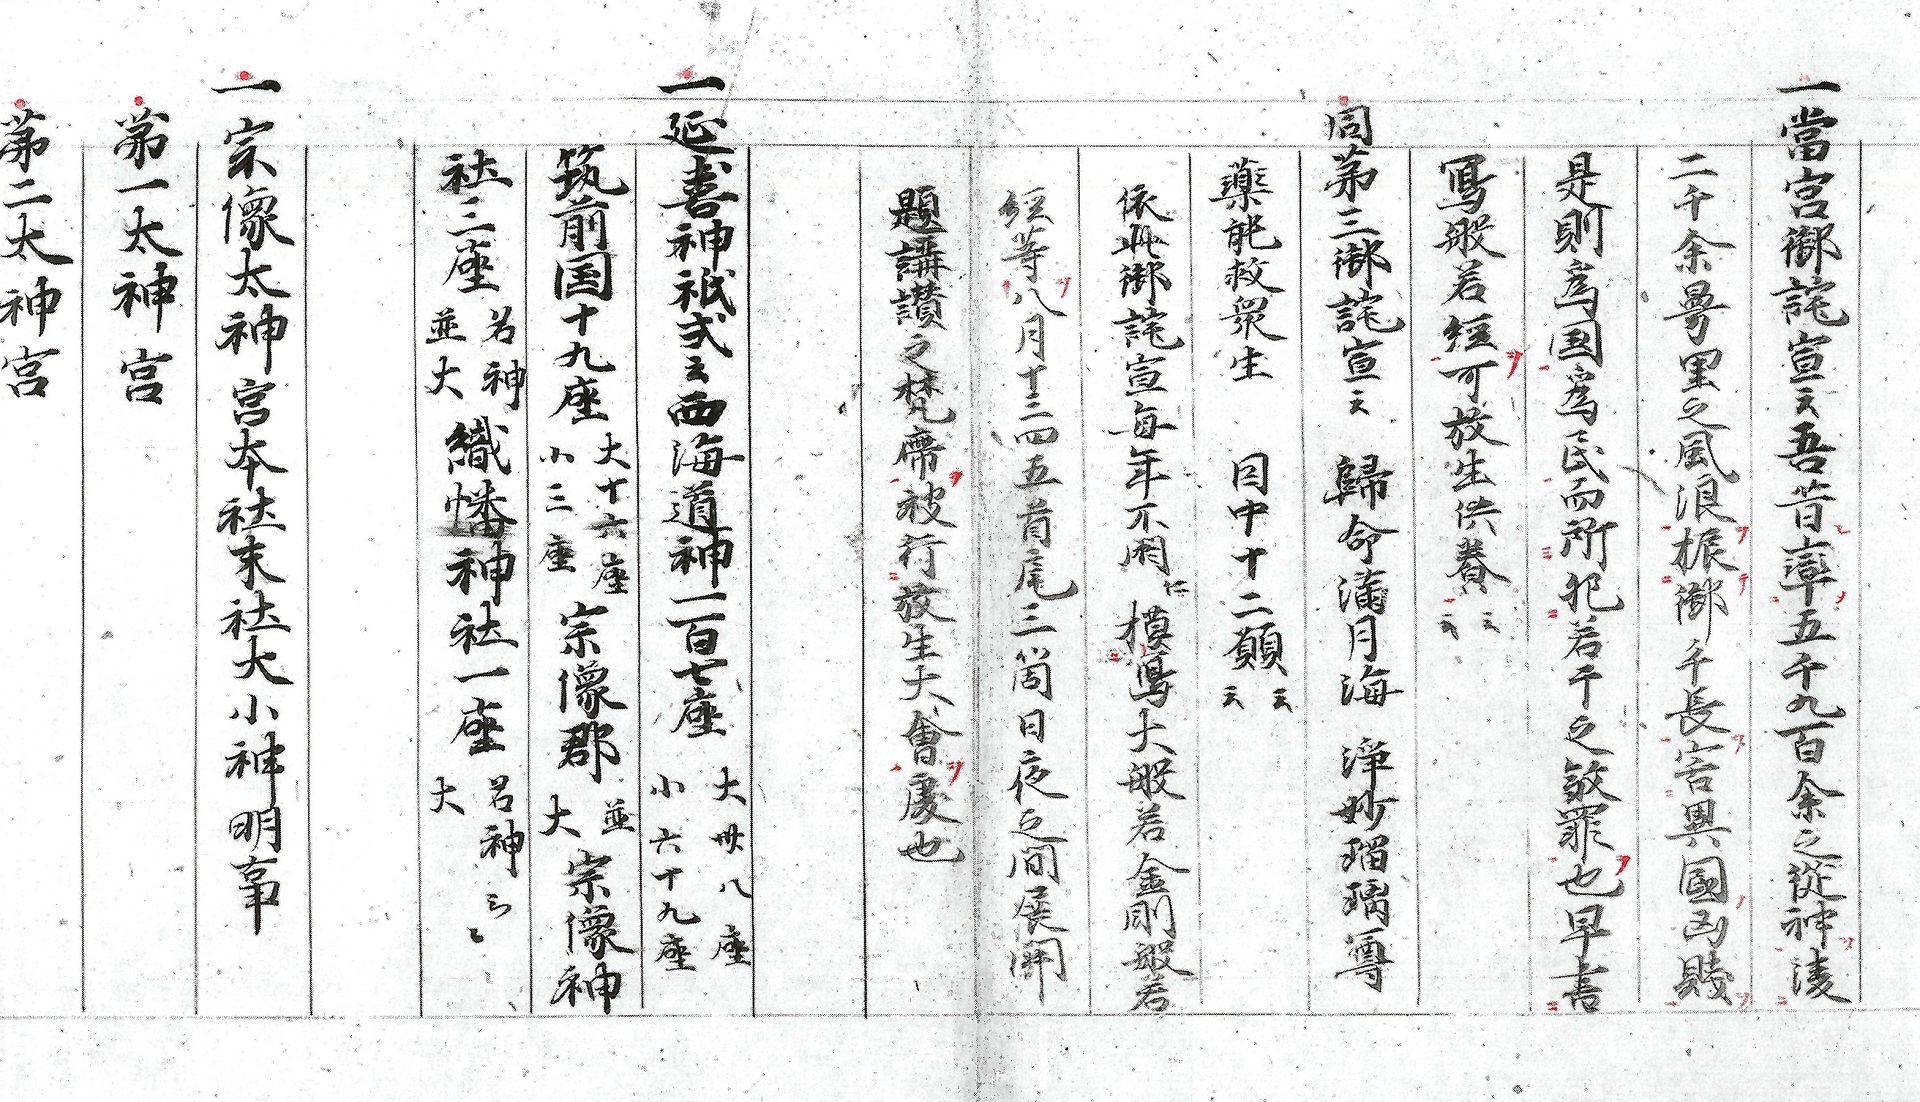 一當宮御詫宣云吾昔率五千九百余之従神凌
二千余㝵里之風浪振御手長害異國凶賊
是則為国為民而所犯若干之敘罪也早書
寫般若経可放生供養云云
同第三御詫宣云 歸命満月海 淨妙瑠璃尊
藥能救衆生 因中十二願云云
依此御詫宣毎年不闕仁摸寫大般若金剛般若
経等八月十三四五首尾三箇日夜之間展開
題講讃之梵席被行放生大會慶也
一延喜神祇式云西海道神一百七座 大卅八座 小六十九座
筑前国十九座 大十六座 小三座 宗像郡 並大 宗像神
社三座 名神並大 織幡神社一座 名神大云々
一宗像太神宮本社末社大小神明事
第一太神宮
第二太神宮